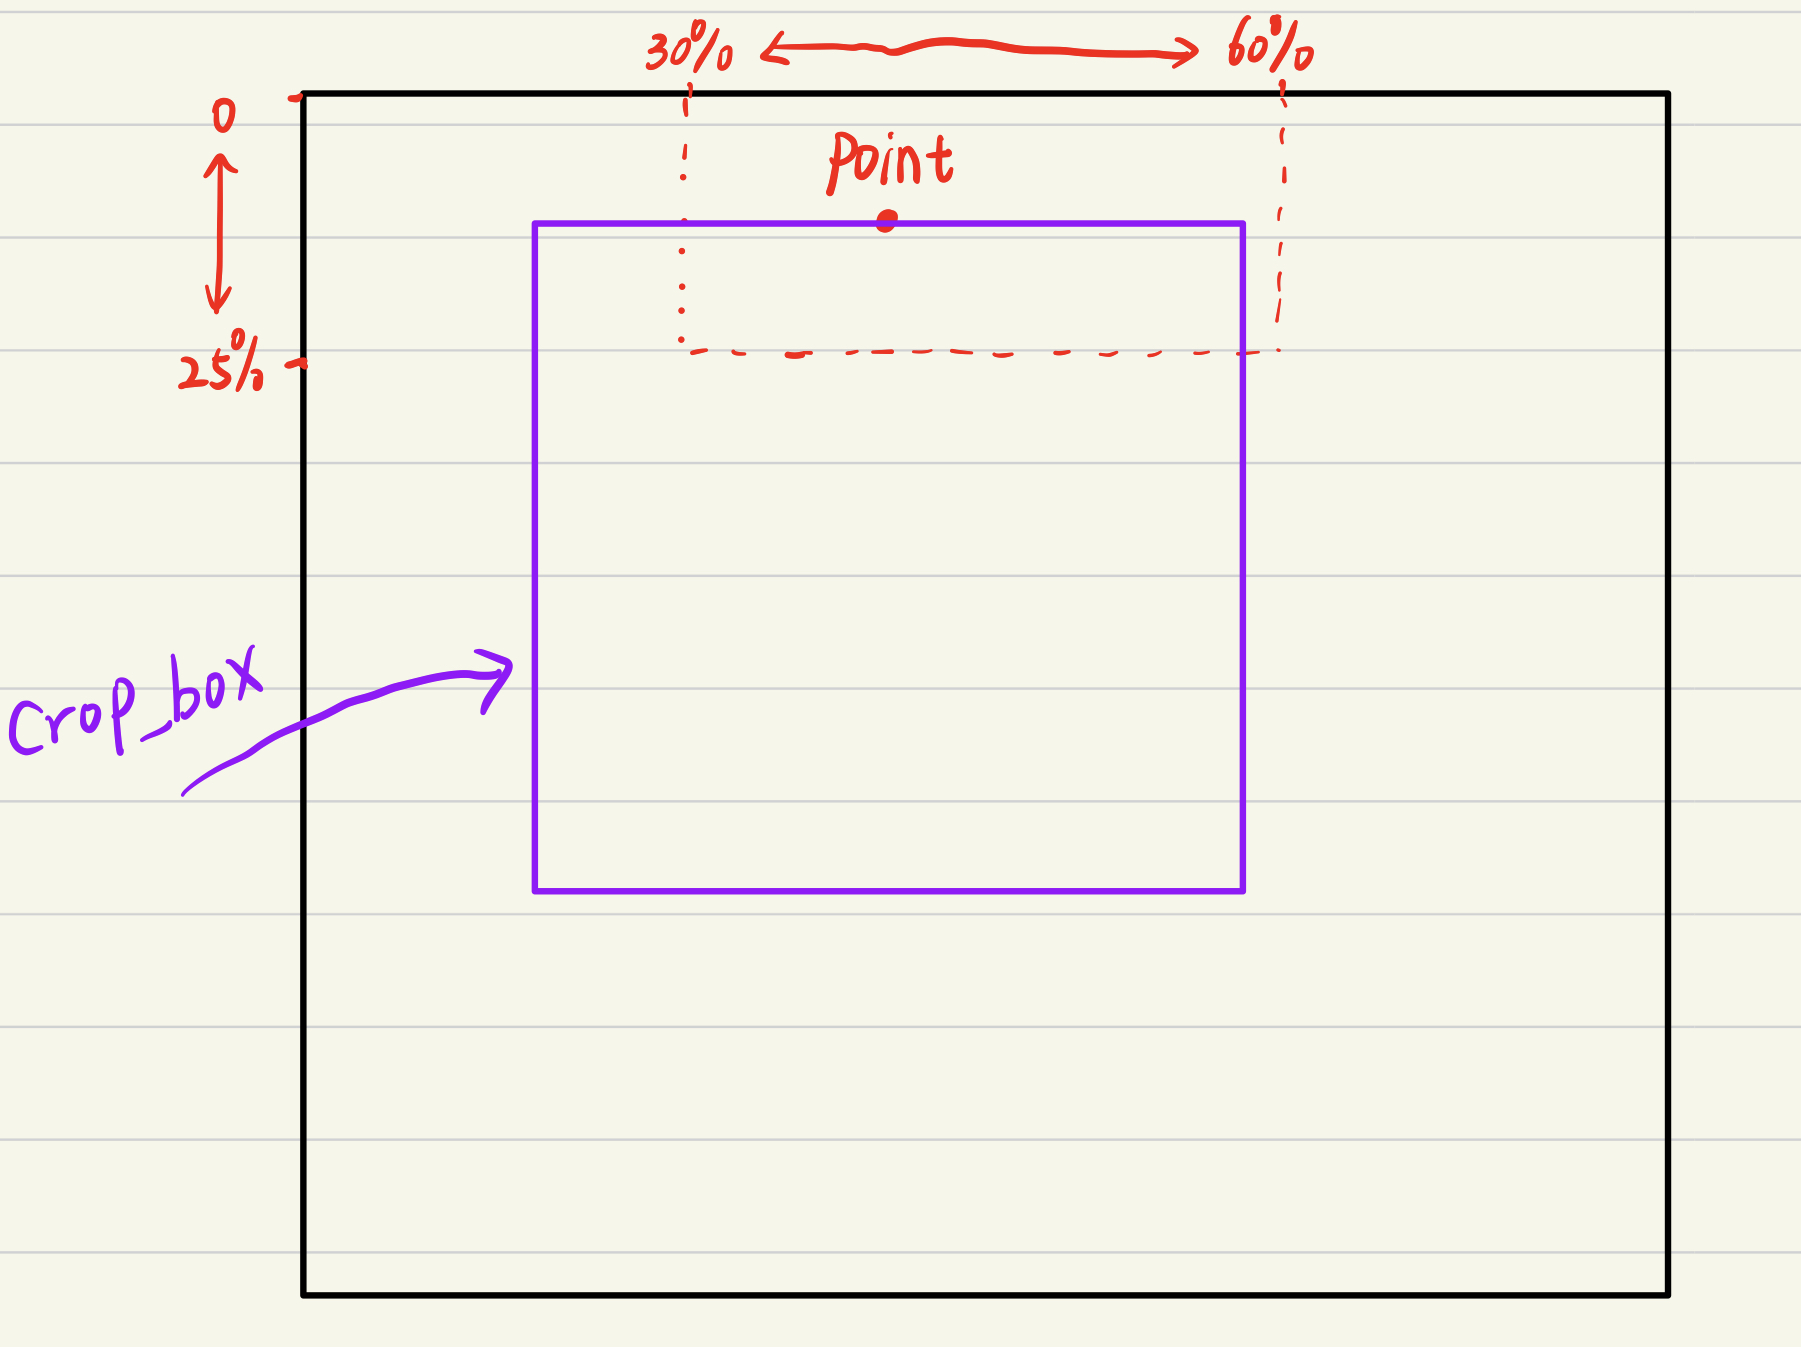 30% 60%
0
Point
25%
Crop_box